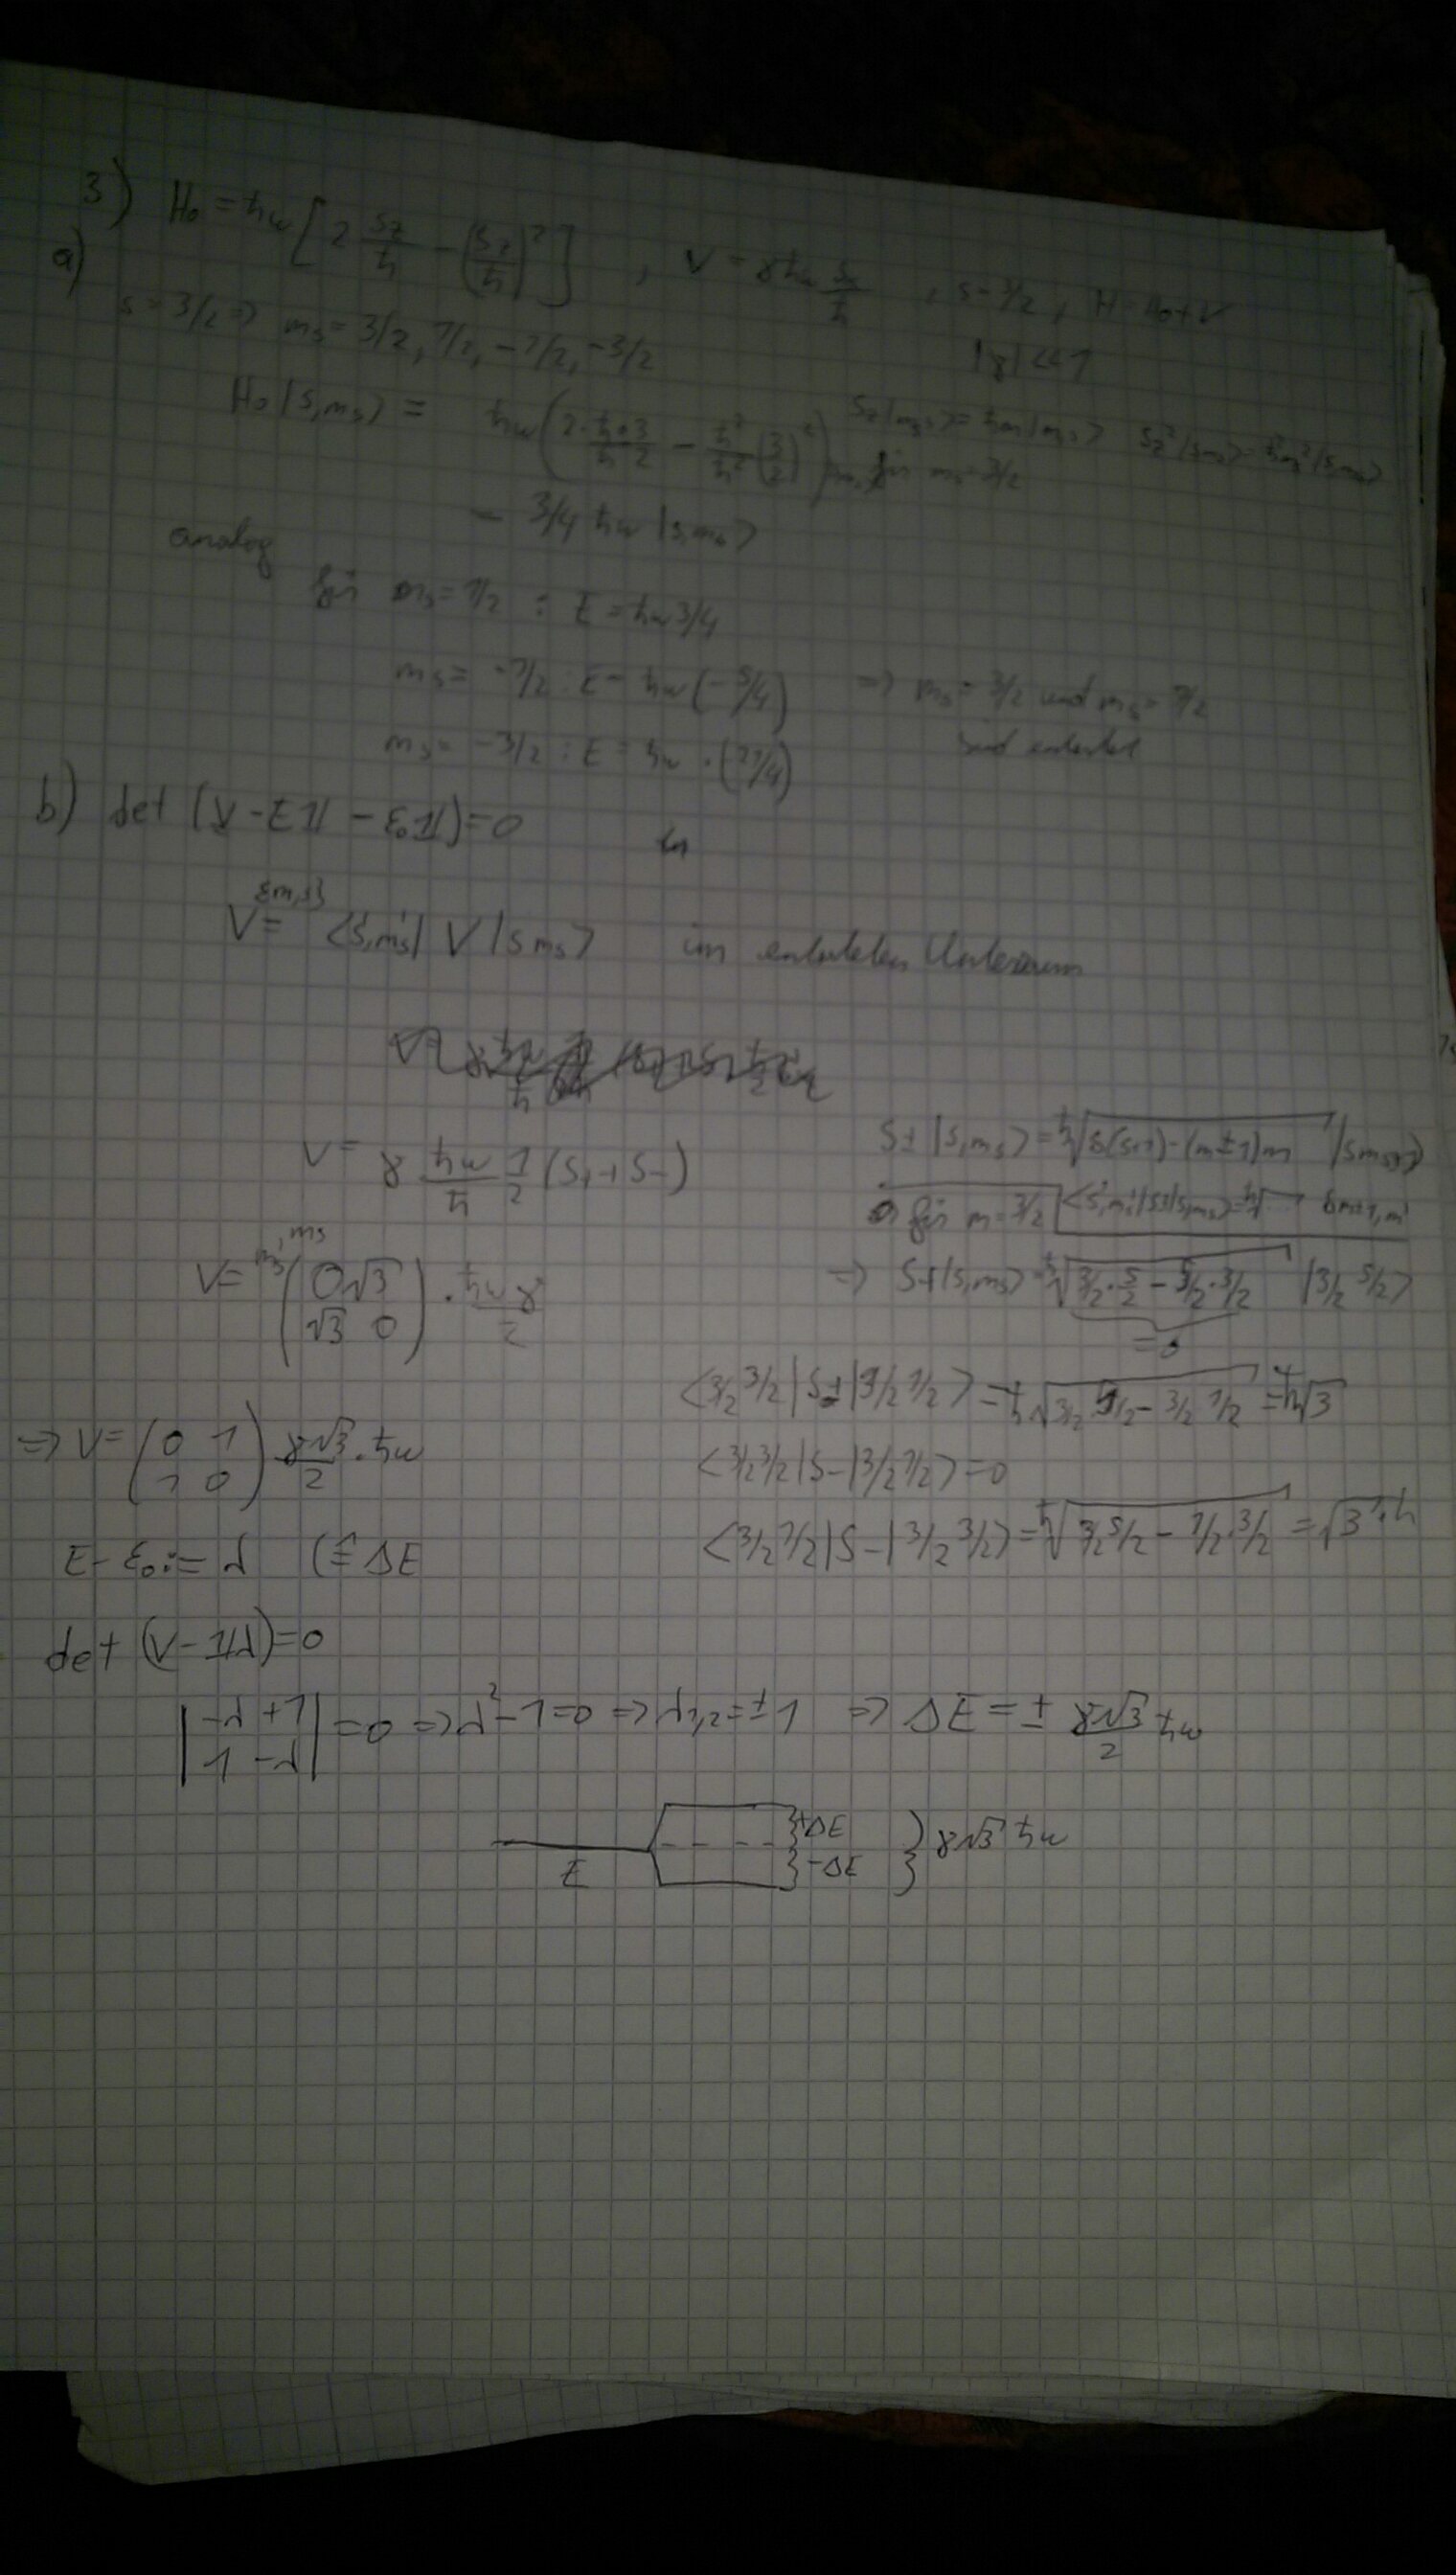 3) H₀ = ħω [2 Sz/ħ − (Sz/ħ)²] , V = γħω Sx/ħ , s = 3/2 , H = H₀ + V
a) s = 3/2 ⇒ ms = 3/2, 1/2, −1/2, −3/2 |γ| << 1
H₀ |s,ms⟩ = ħω (2·ħ·3/ħ2 − ħ²/ħ² (3/2)²) für ms = 3/2 Sz|ms⟩ = ħm|ms⟩ Sz²|sms⟩ = ħ²m²|sms⟩
= 3/4 ħω |s,ms⟩
analog
für ms = 1/2 : E = ħω 3/4
ms = −1/2 : E = ħω (−5/4) ⇒ ms = 3/2 und ms = 1/2
ms = −3/2 : E = ħω · (−21/4) sind entartet
b) det (V − 𝟙E − ε₀𝟙) = 0
V = ⟨s,m's| V |s ms⟩ im entarteten Unterraum
V = γ ħω/ħ 1/2 (S₊ + S₋)
S± |s,ms⟩ = ħ√(s(s+1) − (m±1)m) |s ms±1⟩
für m = 3/2 ⟨s',m's|S±|s,ms⟩ = ħ√ δm±1,m'
V = m's,ms (0 √3
√3 0) · ħωγ/2
⇒ S+|s,ms⟩ = ħ√(3/2 · 5/2 − 5/2 · 3/2) |3/2 5/2⟩
= 0
⟨3/2 3/2|S±|3/2 1/2⟩ = ħ√(3/2 · 5/2 − 3/2 1/2) = ħ√3
⇒ V = (0 1
1 0) γ√3/2 · ħω
⟨3/2 3/2|S−|3/2 1/2⟩ = 0
⟨3/2 1/2|S−|3/2 3/2⟩ = ħ√(3/2 5/2 − 1/2 · 3/2) = √3 · ħ
E − ε₀ := λ (≙ ΔE
det (V − 𝟙λ) = 0
|−λ +1
1 −λ| = 0 ⇒ λ² − 1 = 0 ⇒ λ1,2 = ± 1 ⇒ ΔE = ± γ√3/2 ħω
E +ΔE −ΔE } γ√3 ħω